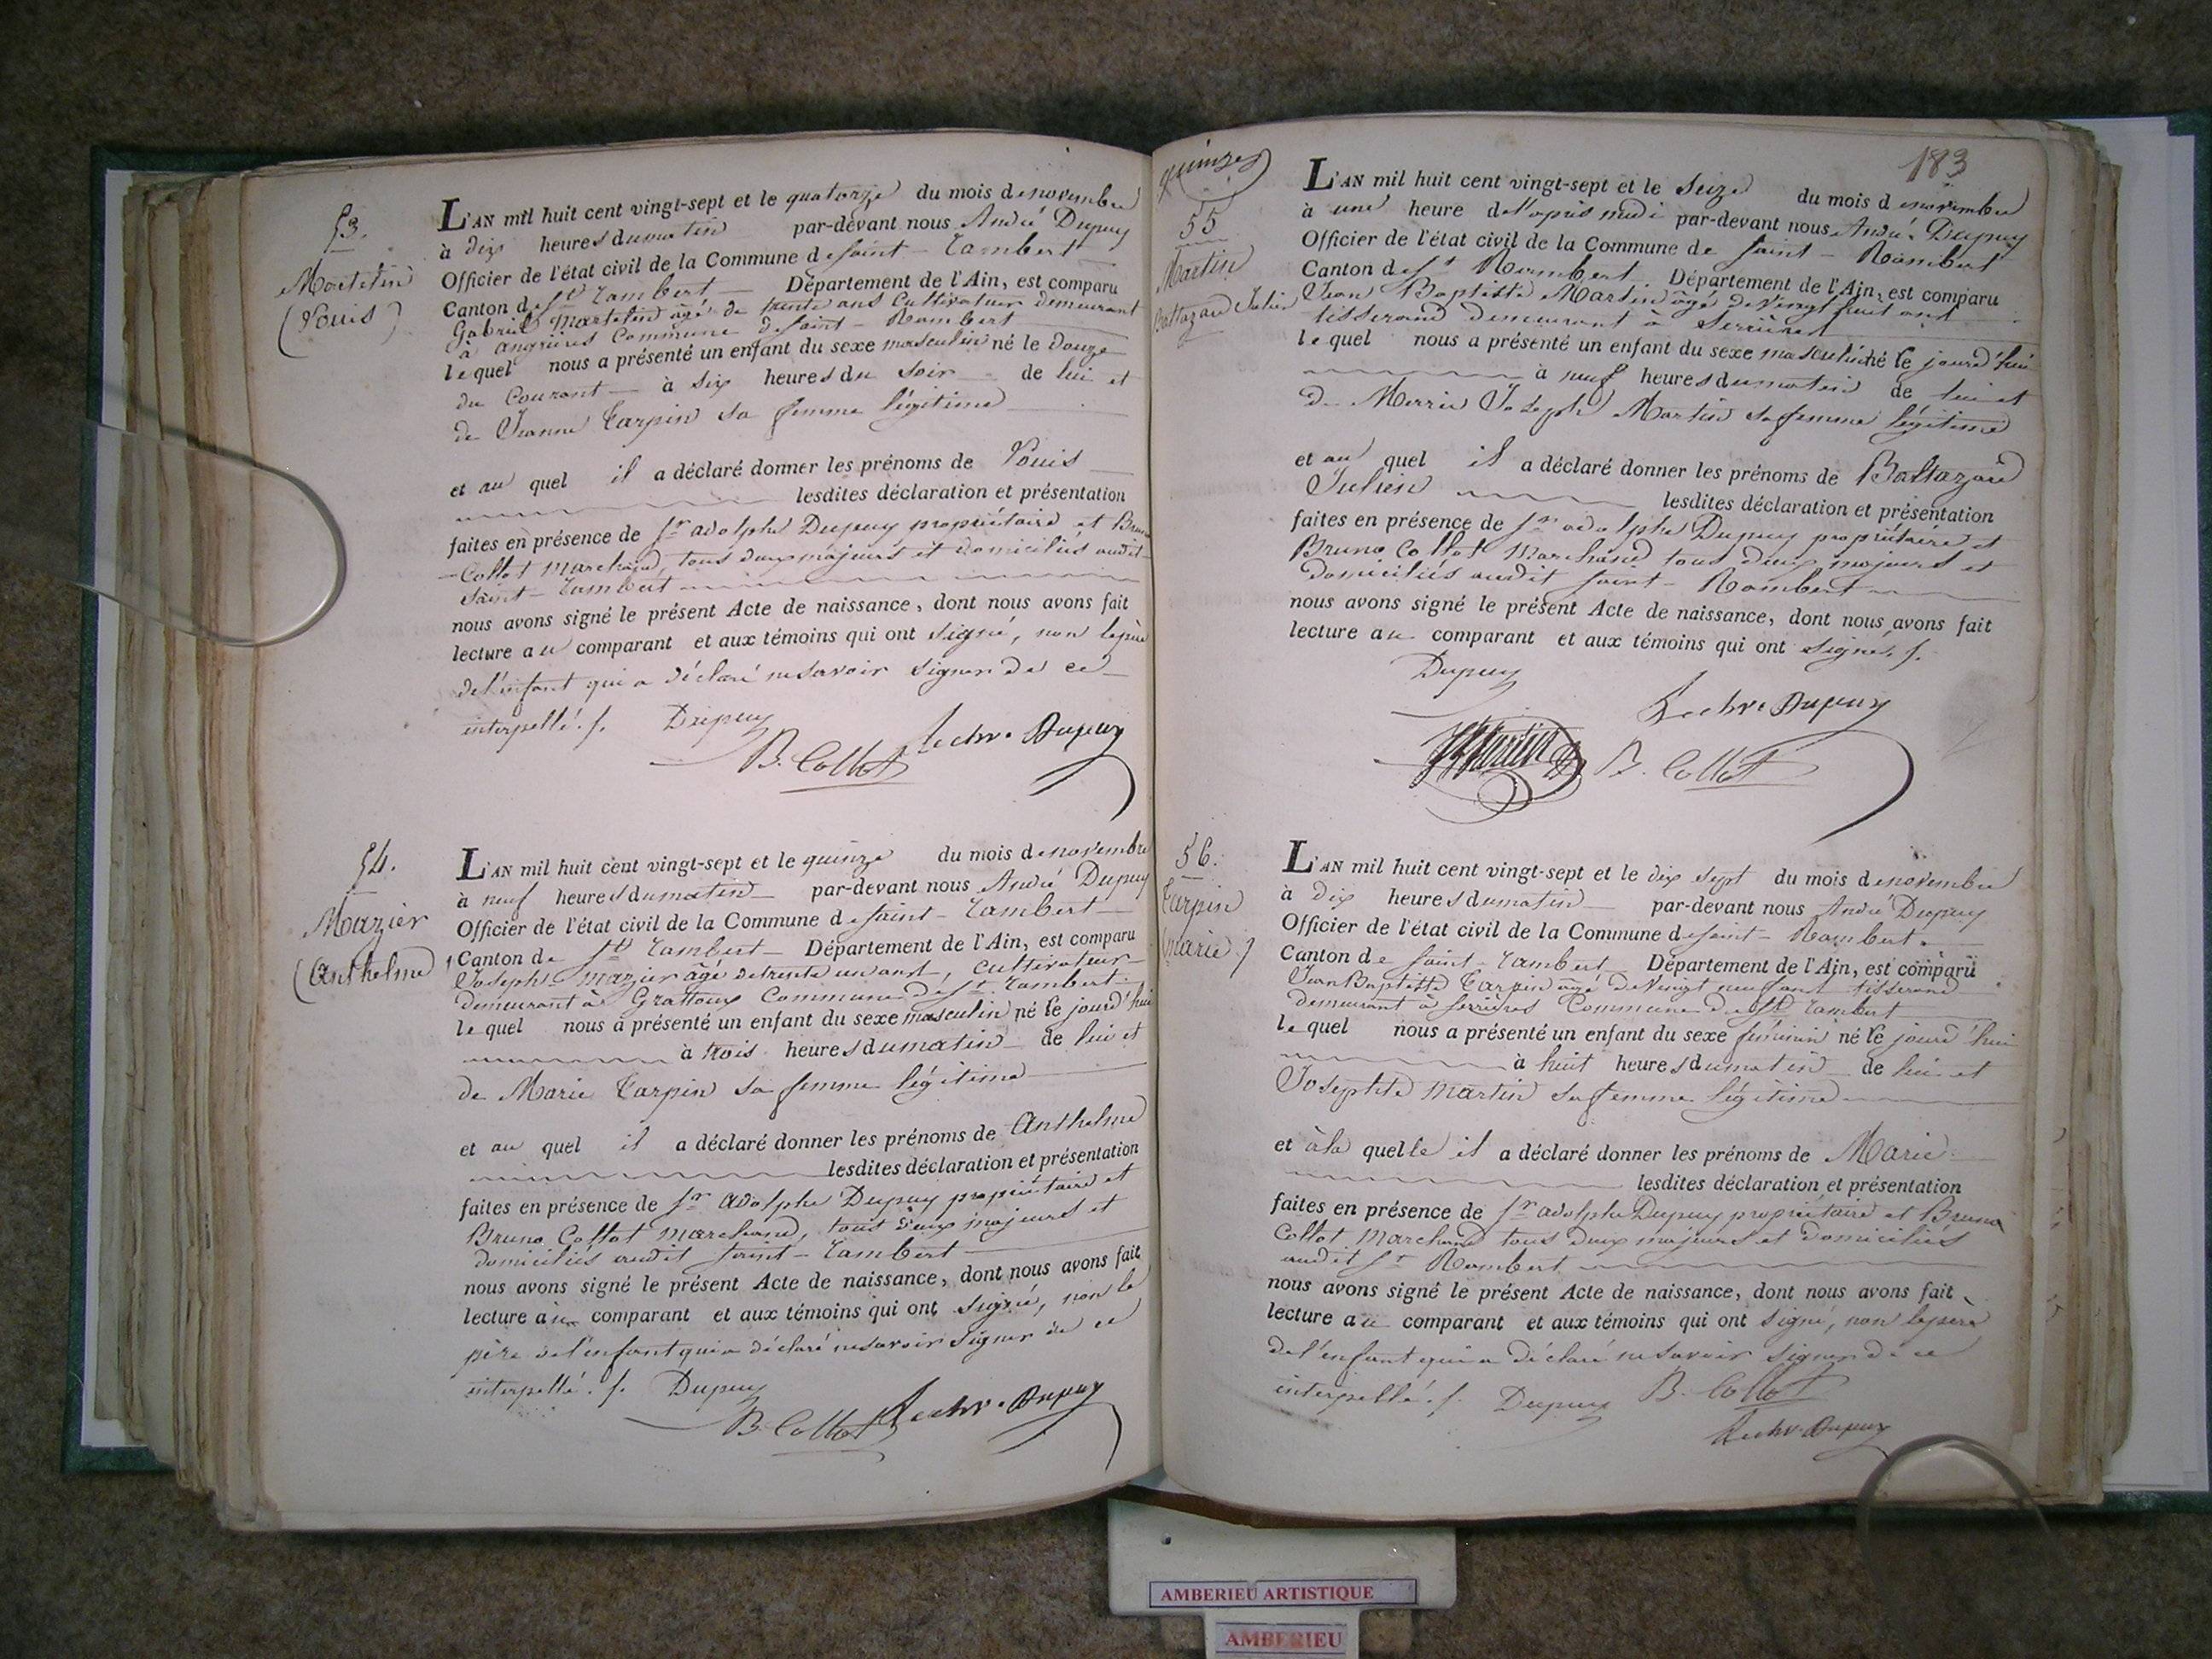 53.
Martelin
(Louis)
L'AN mil huit cent vingt-sept et le quatorze du mois de novembre
à dix heures du matin par-devant nous André Dupuy
Officier de l'état civil de la Commune de Saint-Rambert
Canton de St Rambert Département de l'Ain, est comparu
Gabriel Martelin âgé de trente ans Cultivateur demeurant
à angrières Commune de Saint-Rambert
lequel nous a présenté un enfant du sexe masculin né le douze
du Courant à six heures du soir de lui et
de Jeanne Tarpin sa femme légitime
et au quel il a déclaré donner les prénoms de Louis
lesdites déclaration et présentation
faites en présence de Sr adolphe Dupuy propriétaire et Bruno
Collot Marchand, tous deux majeurs et domiciliés audit
Saint-Rambert
nous avons signé le présent Acte de naissance, dont nous avons fait
lecture au comparant et aux témoins qui ont signé, non le père
de l'enfant qui a déclaré ne savoir signer de ce
interpellé. /. Dupuy
B. Collot Dupuy
54.
Mazier
(Anthelme)
L'AN mil huit cent vingt-sept et le quinze du mois de novembre
à neuf heures du matin par-devant nous André Dupuy
Officier de l'état civil de la Commune de Saint-Rambert
Canton de St Rambert Département de l'Ain, est comparu
Joseph Mazier âgé de trente un ans, cultivateur
demeurant à Grattoux Commune de St Rambert
lequel nous a présenté un enfant du sexe masculin né le jourd'hui
à trois heures du matin de lui et
de Marie Tarpin sa femme légitime
et au quel il a déclaré donner les prénoms de Anthelme
lesdites déclaration et présentation
faites en présence de Sr Adolphe Dupuy propriétaire et
Bruno Collot Marchand, tous deux majeurs et
domiciliés audit Saint-Rambert
nous avons signé le présent Acte de naissance, dont nous avons fait
lecture au comparant et aux témoins qui ont signé, non le
père de l'enfant qui a déclaré ne savoir signer de ce
interpellé. /. Dupuy
B. Collot Dupuy
183
quinze
55
Martin
Baltazard Julien
L'AN mil huit cent vingt-sept et le Seize du mois de novembre
à une heure de l'après midi par-devant nous André Dupuy
Officier de l'état civil de la Commune de Saint-Rambert
Canton de St Rambert Département de l'Ain, est comparu
Jean Baptiste Martin âgé de vingt huit ans
tisserand demeurant à Serrières
lequel nous a présenté un enfant du sexe masculin né le jourd'hui
à neuf heures du matin de lui et
de Merrie Joseph Martin sa femme légitime
et au quel il a déclaré donner les prénoms de Baltazard
Julien lesdites déclaration et présentation
faites en présence de Sr adolphe Dupuy propriétaire et
Bruno Collot Marchand tous deux majeurs et
domiciliés audit Saint-Rambert
nous avons signé le présent Acte de naissance, dont nous avons fait
lecture au comparant et aux témoins qui ont signé. /.
Dupuy
Dupuy
Martin B. Collot
56.
Tarpin
(Marie)
L'AN mil huit cent vingt-sept et le dix sept du mois de novembre
à dix heures du matin par-devant nous André Dupuy
Officier de l'état civil de la Commune de Saint-Rambert.
Canton de Saint-Rambert Département de l'Ain, est comparu
Jean Baptiste Tarpin âgé de vingt neuf ans tisserand
demeurant à Serrières Commune de St Rambert
lequel nous a présenté un enfant du sexe féminin né le jourd'hui
à huit heures du matin de lui et
Josephte Martin sa femme légitime
et à la quelle il a déclaré donner les prénoms de Marie
lesdites déclaration et présentation
faites en présence de Sr adolphe Dupuy propriétaire et Bruno
Collot Marchand tous deux majeurs et domiciliés
audit St Rambert
nous avons signé le présent Acte de naissance, dont nous avons fait
lecture au comparant et aux témoins qui ont signé, non le père
de l'enfant qui a déclaré ne savoir signer de ce
interpellé. /. Dupuy B. Collot
Dupuy
AMBERIEU ARTISTIQUE
AMBERIEU